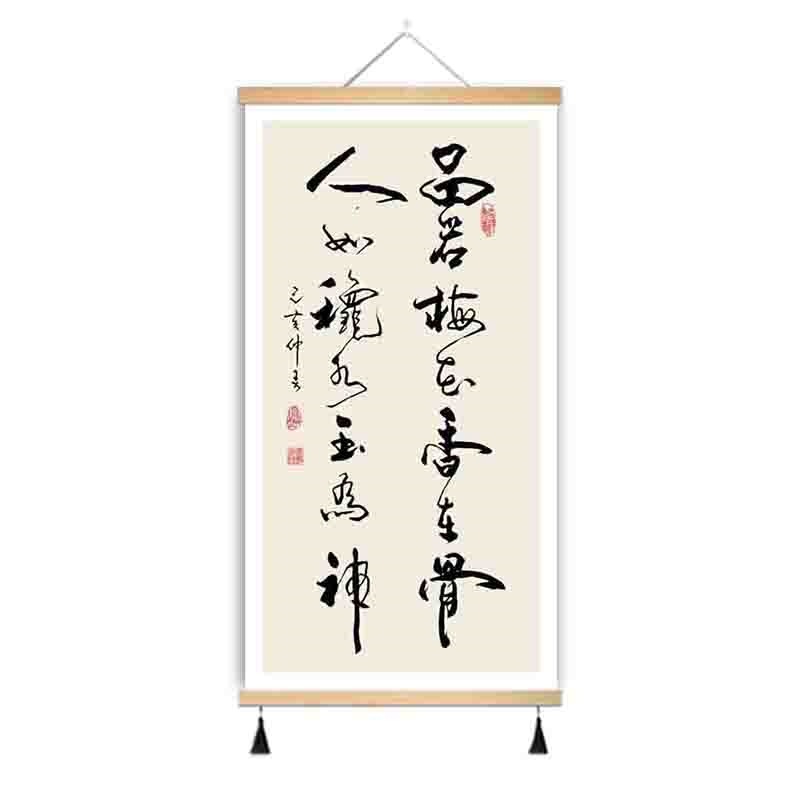 品若梅花香在骨
人如秋水玉為神
己亥仲春